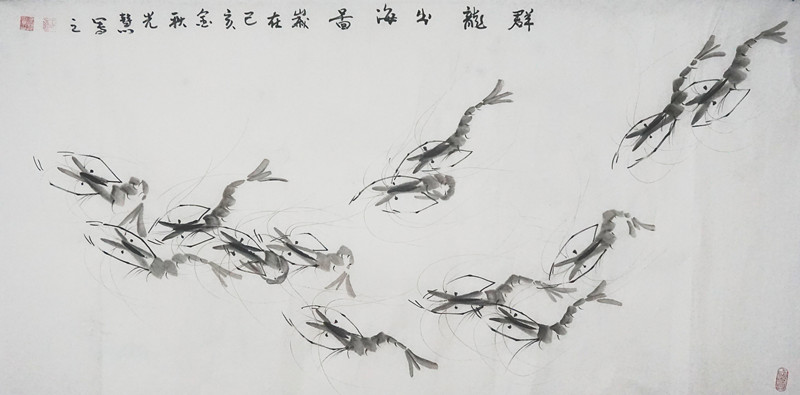 群龍出海圖歲在己亥金秋光慧寫之